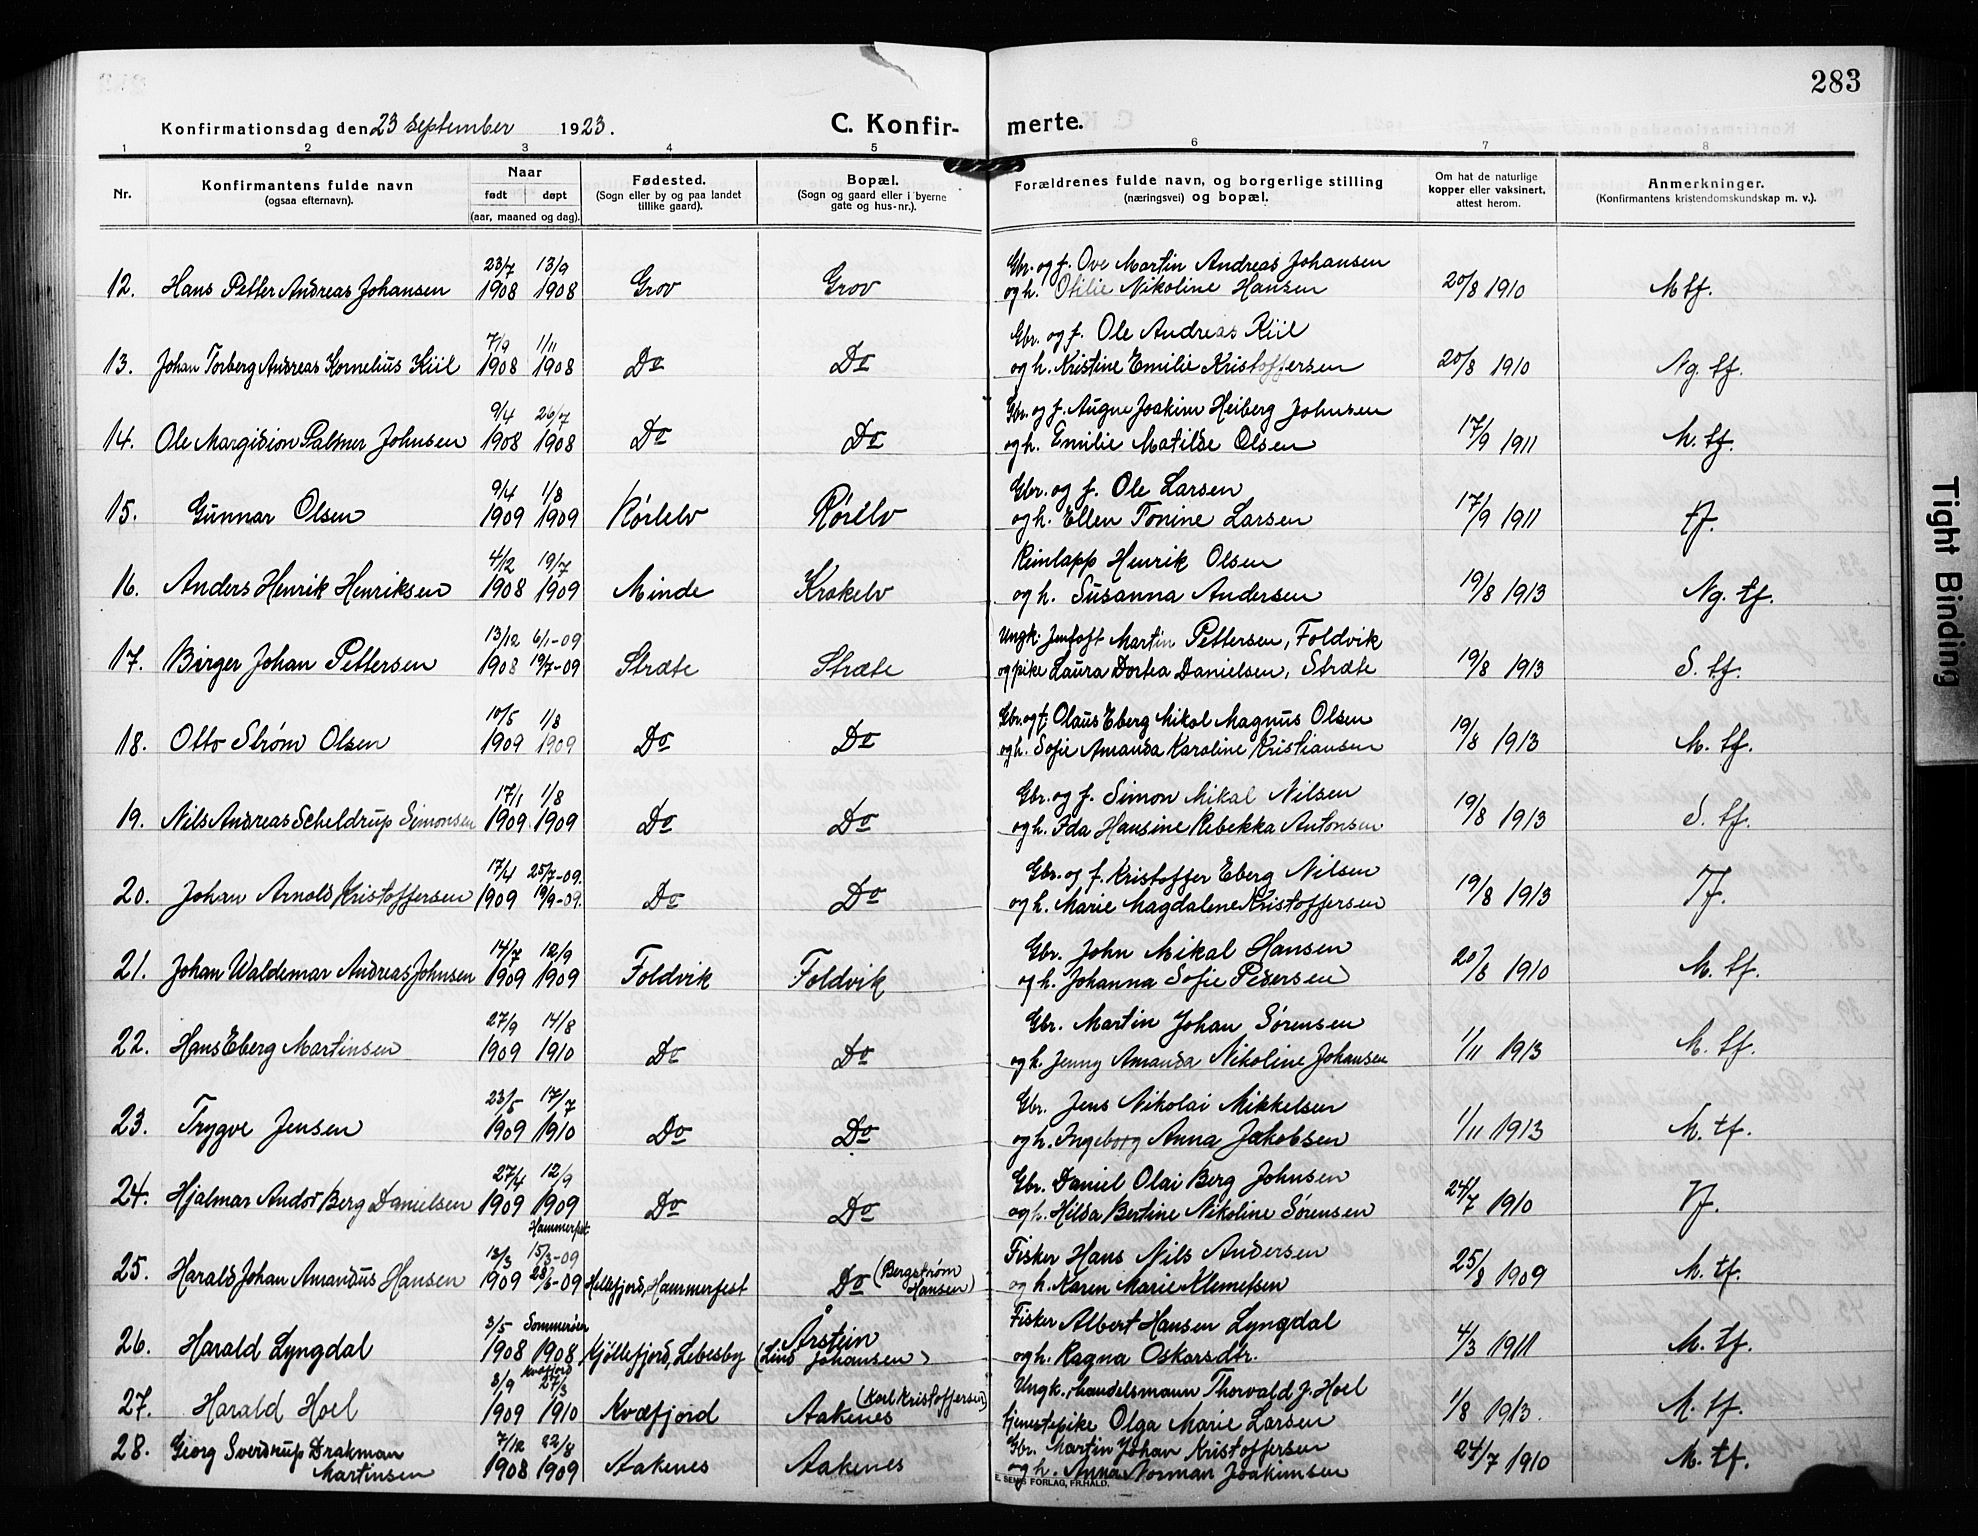 283
Konfirmationsdag den 23 September 1923.
C. Konfirmerte.
1 2 3 4 5 6 7 8
Nr.
Konfirmantens fulde navn
(ogsaa efternavn).
Naar
født døpt
(aar, maaned og dag).
Fødested.
(Sogn eller by og paa landet
tillike gaard).
Bopæl.
(Sogn og gaard eller i byerne
gate og hus-nr.).
Forældrenes fulde navn, og borgerlige stilling
(næringsvei) og bopæl.
Om hat de naturlige
kopper eller vaksinert,
attest herom.
Anmerkninger.
(Konfirmantens kristendomskundskap m. v.).
23/7 13/9 Gbr. og f. Ove Martin Andreas Johansen
12. Hans Petter Andreas Johansen 1908 1908 Grov Grov og h. Otilie Nikoline Hansen 20/8 1910 M tf.
7/9 1/11 Gbr. og f. Ole Andreas Kiil
13. Johan Torberg Andreas Kornelius Kiil 1908 1908 Do Do og h. Kristine Emilie Kristoffersen 20/8 1910 Ng. tf.
9/4 26/7 Gbr. og f. Augne Joakim Heiberg Johnsen
14. Ole Margidion Palmer Johnsen 1908 1908 Do Do og h. Emilie Matilde Olsen 17/9 1911 M. tf.
9/4 1/8 Gbr. og f. Ole Larsen
15. Gunnar Olsen 1909 1909 Rørelv Rørelv og h. Ellen Tonine Larsen 17/9 1911 tf.
4/12 19/7 Reinlapp Henrik Olsen
16. Anders Henrik Henriksen 1908 1909 Minde Krokelv og h. Susanna Andersen 19/8 1913 Ng. tf.
13/12 6/1-09 Ungk. Jentoft Martin Pettersen, Foldvik
17. Birger Johan Pettersen 1908 19/7-09 Stræte Stræte og pike Laura Dortea Danielsen, Stræte 19/8 1913 S. tf.
10/5 1/8 Gbr. og f. Olaus Eberg Mikal Magnus Olsen
18. Otto Strøm Olsen 1909 1909 Do Do og h. Sofie Amanda Karoline Kristiansen 19/8 1913 M. tf.
17/1 1/8 Gbr. og f. Simon Mikal Nilsen
19. Nils Andreas Scheldrup Simonsen 1909 1909 Do Do og h. Ida Hansine Rebekka Antonsen 19/8 1913 S. tf.
17/4 25/7-09. Gbr. og f. Kristoffer Eberg Nilsen
20. Johan Arnold Kristoffersen 1909 19/9-09. Do Do og h. Marie Magdalene Kristoffersen 19/8 1913 Tf.
14/7 12/9 Gbr. John Mikal Hansen
21. Johan Waldemar Andreas Johnsen 1909 1909 Foldvik Foldvik og h. Johanna Sofie Pedersen 20/8 1910 M. tf.
27/9 14/8 Gbr. Martin Johan Sørensen
22. Hans Eberg Martinsen 1909 1910 Do Do og h. Jenny Amanda Nikoline Johansen 1/11 1913 M. tf.
23/5 17/7 Gbr. Jens Nikolai Mikkelsen
23. Trygve Jensen 1909 1910 Do Do og h. Ingeborg Anna Jakobsen 1/11 1913 M. tf.
27/4 12/9 Gbr. Daniel Olai Berg Johnsen
24. Hjalmar Andor Berg Danielsen 1909 1909 Do Do og h. Hilda Bertine Nikoline Sørensen 24/7 1910 Tf.
Hammerfest
13/3 15/3-09 Fisker Hans Nils Andersen
25. Harald Johan Amandus Hansen 1909 28/6-09 Hellefjord, Hammerfest Do (Bergstrøm Hansen) og h. Karen Marie Klemetsen 25/8 1909 M. tf.
3/5 Sommerøen Årstein Fisker Albert Hansen Lyngdal
26. Harald Lyngdal 1908 1908 Kjøllefjord, Lebesby (Lind Johansen) og h. Ragna Oskarsdtr. 4/3 1911 M. tf.
Kvæfjord
8/9 27/3 (Karl Kristoffersen) Ungk. handelsmann Thorvald J. Hoel
27. Harald Hoel 1909 1910 Kvæfjord Aakenes tjenestepike Olga Marie Larsen 1/8 1913. M. tf.
28. Georg Sverdrup Drakman 7/12 22/8 Gbr. Martin Johan Kristoffersen
Martinsen 1908 1909 Aakenes Aakenes og h. Anna Norman Joakimsen 24/7 1910 M. tf.
E. SEMS FORLAG, FR.HALD.
Tight Binding